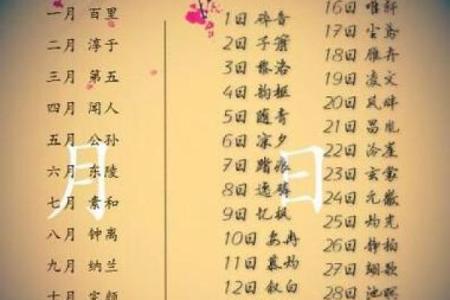 一月 百里
二月 淳于
三月 第五
四月 闻人
五月 公孙
六月 东陵
七月 素和
八月 钟离
九月 纳兰
十
月
1日 碎音
2日 子
3日 黎洛
4日 韵枢
5日 随青
6日 凉夕
7日 踏痕
8日 逸
9日 忆枫
10日 安冉
11日 慕灼
12日 叙白
日
16日 唯轩
17日 尘
18日 雁卉
19日 凌文
20日 风畔
21日 昌胤
22日 泠崖
23日 玄霖
24日 元徽
25日 灼光
26日 铮柏
27日 翊歌
28日 池暝